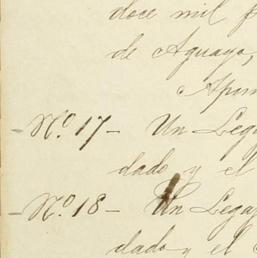 doce mil p
de Aguayo,
Apun
- N.º 17 - Un Lega
dado y el
- N.º 18 - Un Legaj
dado y el